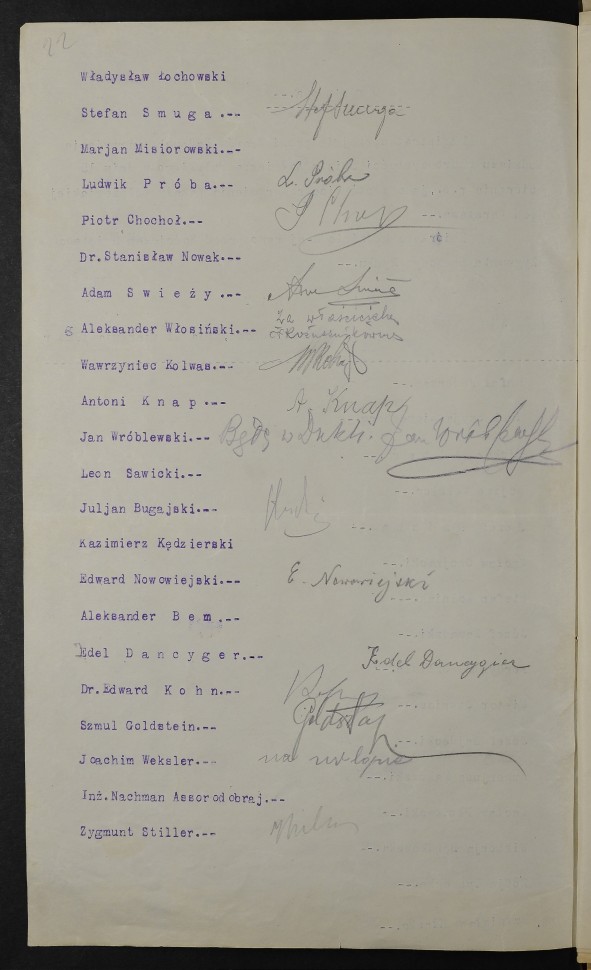 22
Władysław Łochowski
Stefan S m u g a .--
Marjan Misiorowski.--
Ludwik P r ó b a.-- L. Próba
Piotr Chochoł.--
Dr.Stanisław Nowak.--
Adam S w i e ż y .--
za właściciela
Aleksander Włosiński.--
Wawrzyniec Kolwas.--
Antoni K n a p .-- A. Knap
Jan Wróblewski.-- Jan Wróblewski
Leon Sawicki.--
Juljan Bugajski.--
Kazimierz Kędzierski
Edward Nowowiejski.-- E. Nowowiejski
Aleksander B e m .--
Edel D a n c y g e r.-- Edel Dancygier
Dr.Edward K o h n.--
Szmul Goldstein.--
Joachim Weksler.-- na urlopie
Inż.Nachman Assorodobraj.--
Zygmunt Stiller.--